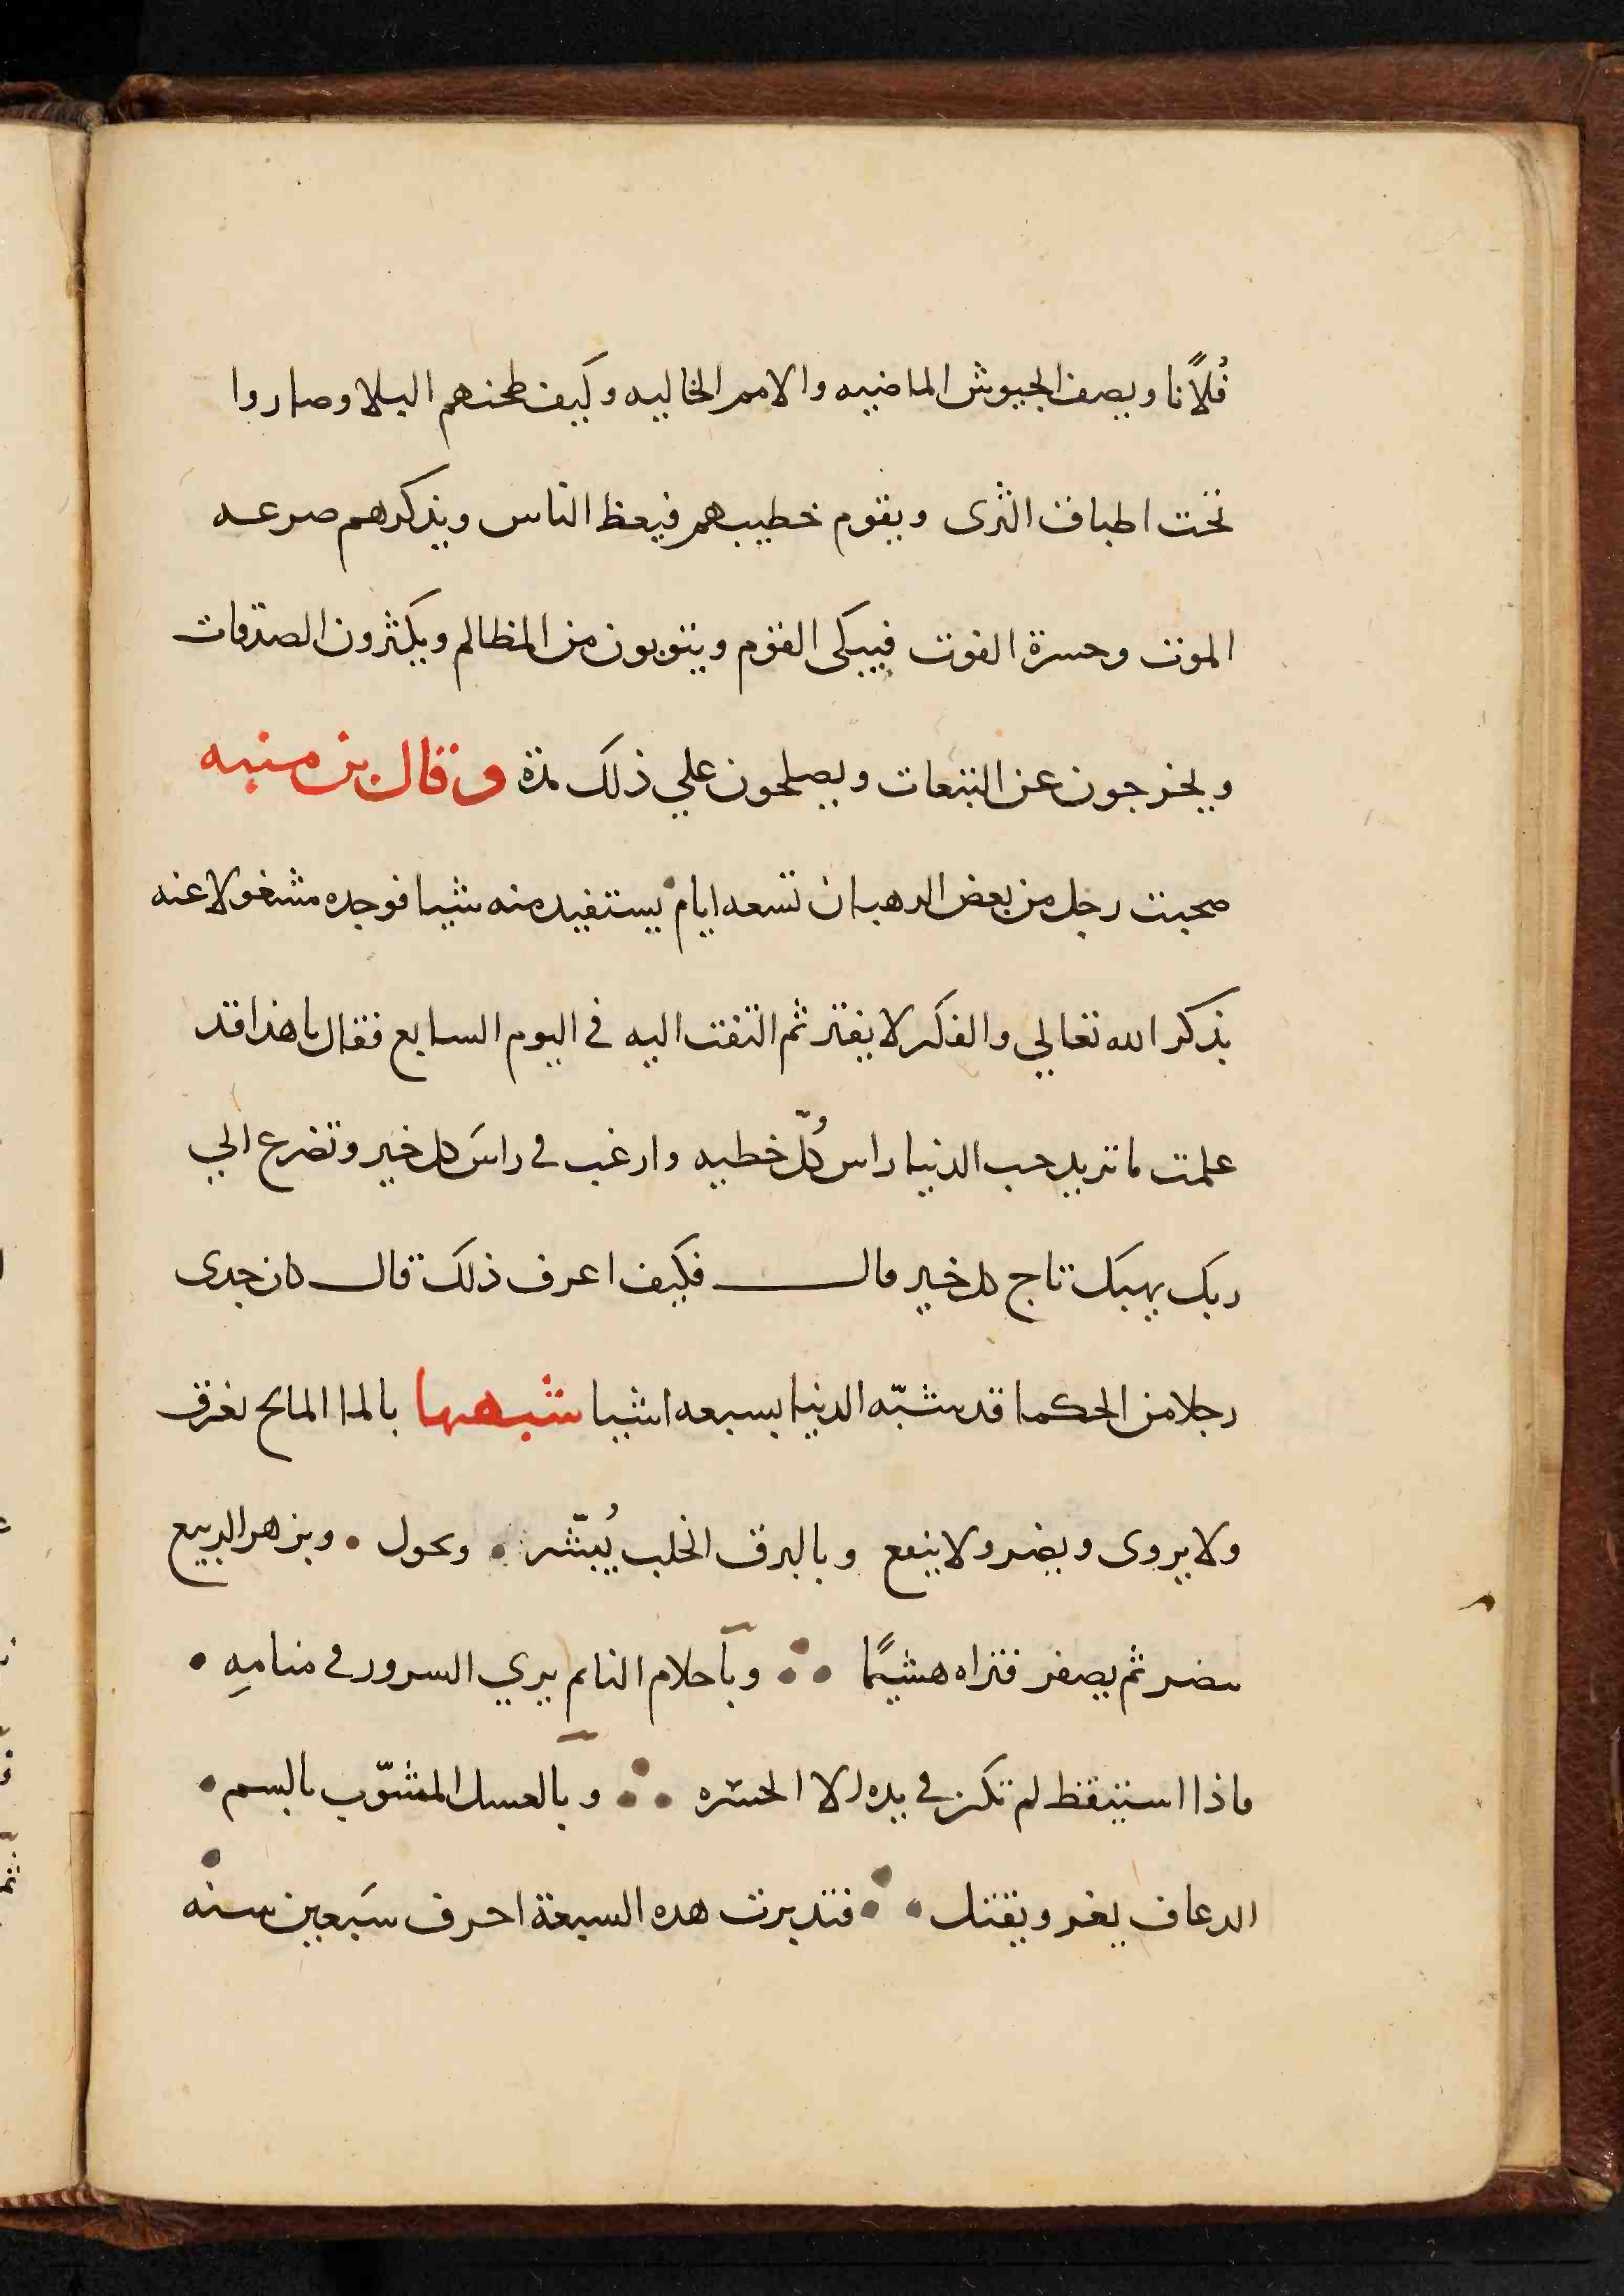 فُلاًنا ويصف الجيوش الماضيه والامم الخاليه وكيف طحنهم البلا وصاروا
تحت اطباق الثرى ويقوم خطيبهم فيعظ الناس ويذكرهم صرعه
الموت وحسرة الفوت فيبكى القوم ويتوبون من المظالم ويكثرون الصدقات
ويخرجون عن التبعات ويصلحون علي ذلك مدة وقال بن منبه
صحبت رجل من بعض الرهبان تسعه ايام يستفيد منه شيا فوجده مشغولا عنه
بذكر الله تعالي والفكر لا يفتر ثم التفت اليه في اليوم السابع فقال يا هذا قد
علمت ما تريد حب الدنيا راس كُلّ خطيه وارغب في راسَ كل خير وتضرع الي
ربك يهبك تاج كل خير قال فكيف اعرف ذلك قال كان جدى
رجلا من الحكما قد شبّه الدنيا بسبعه اشيا شبهها بالما المالح يغرق
ولا يروى ويضر ولا ينفع وبالبرق الخلب يُبشّر ويحول وبزهر الربيع
ينضر ثم يصفر فتراه هشيمًا وبآحلام النايم يري السرور في منامِهِ
فاذا استيقظ لم تكن في يده الا الحسره وبآلعسل المشوّب بالسم
الدعاف يغر ويقتل فتدبرت هده السبعة احرف سَبعين سنه